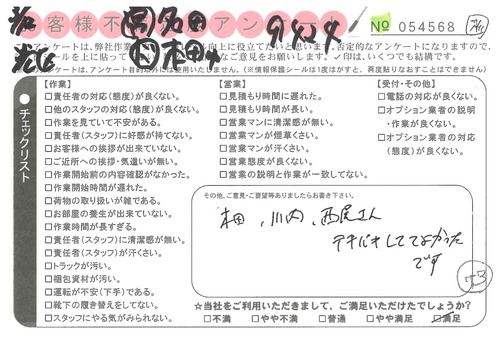 お客様不満足アンケート
№ 054568
アンケートは、弊社作業
向上に役立てたいと思います。否定的なアンケートになりますので、
ールを上に貼って
なご意見をお願いします。✓印は、いくつでも結構です。
アンケートは、アンケート目的以外には使用いたしません。(※情報保護シールは1度はがすと、再度貼りなおすことはできません)
チェックリスト
【作業】
□責任者の対応(態度)が良くない。
□他のスタッフの対応(態度)が良くない。
□作業を見ていて不安がある。
□責任者(スタッフ)に好感が持てない。
□お客様への挨拶が出来ていない。
□ご近所への挨拶・気遣いが無い。
□作業開始前の内容確認がなかった。
□作業開始時間が遅れた。
□荷物の取り扱いが雑である。
□お部屋の養生が出来ていない。
□作業時間が長すぎる。
□責任者(スタッフ)に清潔感が無い。
□責任者(スタッフ)が汗くさい。
□トラックが汚い。
□梱包資材が汚い。
□運転が不安(下手)である。
□靴下の履き替えをしてない。
□スタッフにやる気がみられない。
【営業】
□見積もり時間に遅れた。
□見積もり時間が長い。
□営業マンに清潔感が無い。
□営業マンが煙草くさい。
□営業マンが汗くさい。
□営業態度が良くない。
□営業の説明と作業が一致してない。
【受付・その他】
□電話の対応が良くない。
□オプション業者の説明
・作業が良くない。
□オプション業者の対応
(態度)が良くない。
その他、ご意見・ご要望等ありましたらお書き下さい。
本田、川内、西尾さん
テキパキしててよかった
です
☆当社をご利用いただきまして、ご満足いただけたでしょうか?
□不満 □やや不満 □普通 □やや満足 ☑満足